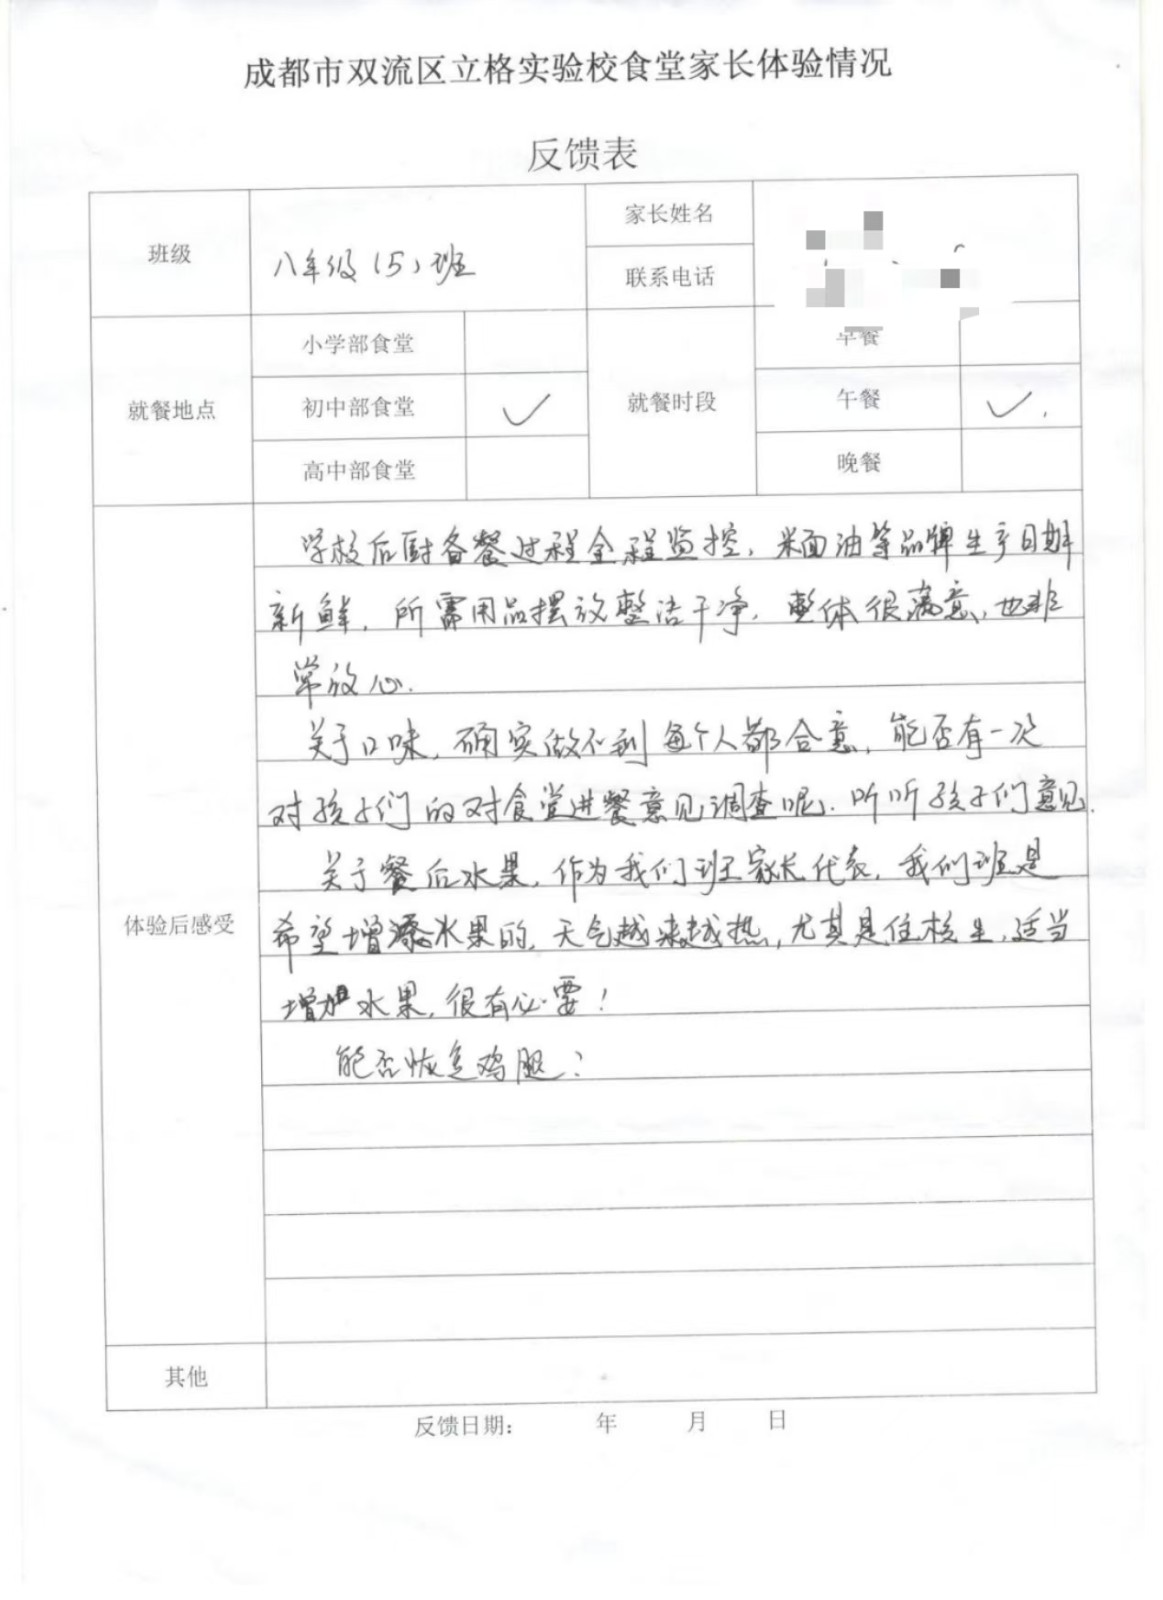 成都市双流区立格实验校食堂家长体验情况
反馈表
班级
八年级（5）班
家长姓名
联系电话
就餐地点
小学部食堂
初中部食堂 ✓
高中部食堂
就餐时段
早餐
午餐 ✓
晚餐
体验后感受
学校后厨备餐过程全程监控，米面油等品牌生产日期
新鲜，所需用品摆放整洁干净，整体很满意，也非
常放心.
关于口味，确实做不到每个人都合意，能否有一次
对孩子们的对食堂进餐意见调查呢. 听听孩子们意见.
关于餐后水果，作为我们班家长代表，我们班是
希望增添水果的，天气越来越热，尤其是住校生，适当
增加水果，很有必要！
能否恢复鸡腿？
其他
反馈日期： 年 月 日